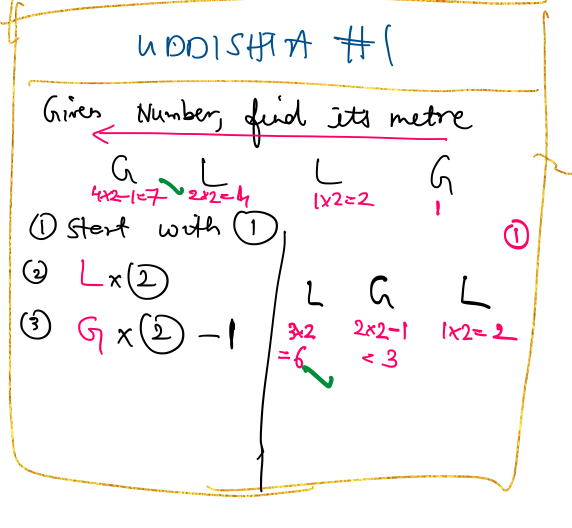 UDDISHTA #1
Given Number, find its metre
G L L G
4x2-1=7 2x2=4 1x2=2 1
① Start with ①
①
② L x ②
③ G x ② - 1
L G L
3x2 2x2-1 1x2=2
=6 = 3